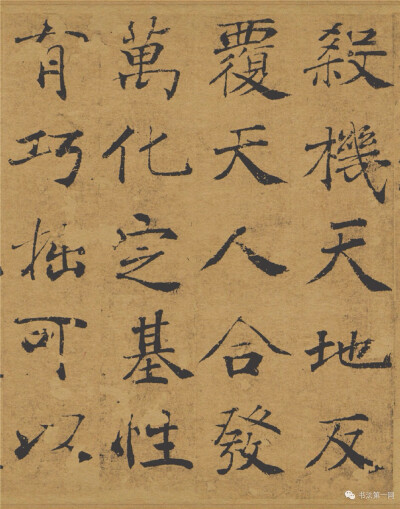 殺機天地反
覆天人合發
萬化定基性
有巧拙可以
书法第一网